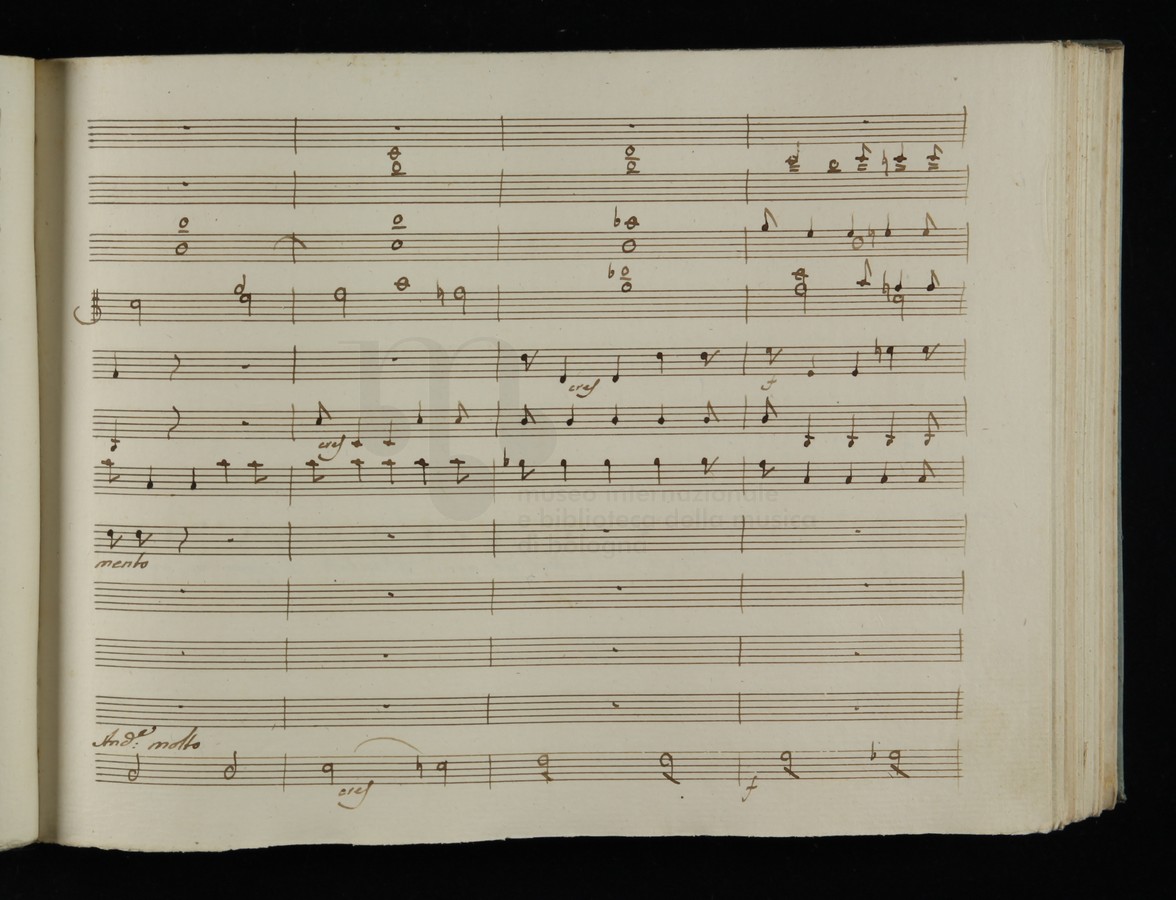 cres
f
cres
museo internazionale
e biblioteca della musica
di bologna
mento
And.e molto
cres
f